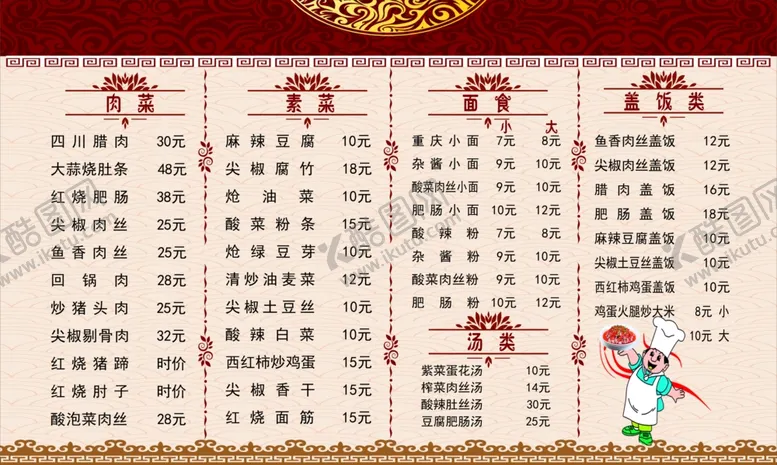 肉菜
四川腊肉 30元
大蒜烧肚条 48元
红烧肥肠 38元
尖椒肉丝 25元
鱼香肉丝 25元
回锅肉 28元
炒猪头肉 25元
尖椒剔骨肉 32元
红烧猪蹄 时价
红烧肘子 时价
酸泡菜肉丝 28元
素菜
麻辣豆腐 10元
尖椒腐竹 18元
炝油菜 10元
酸菜粉条 15元
炝绿豆芽 10元
清炒油麦菜 12元
尖椒土豆丝 10元
酸辣白菜 10元
西红柿炒鸡蛋 15元
尖椒香干 15元
红烧面筋 15元
面食
小 大
重庆小面 7元 8元
杂酱小面 9元 10元
酸菜肉丝小面 9元 10元
肥肠小面 10元 12元
酸辣粉 7元 8元
杂酱粉 9元 10元
酸菜肉丝粉 9元 10元
肥肠粉 10元 12元
汤类
紫菜蛋花汤 10元
榨菜肉丝汤 14元
酸辣肚丝汤 30元
豆腐肥肠汤 25元
盖饭类
鱼香肉丝盖饭 12元
尖椒肉丝盖饭 12元
腊肉盖饭 16元
肥肠盖饭 18元
麻辣豆腐盖饭 10元
尖椒土豆丝盖饭 10元
西红柿鸡蛋盖饭 10元
鸡蛋火腿炒大米 8元 小
10元 大
酷图网
www.ikutu.com